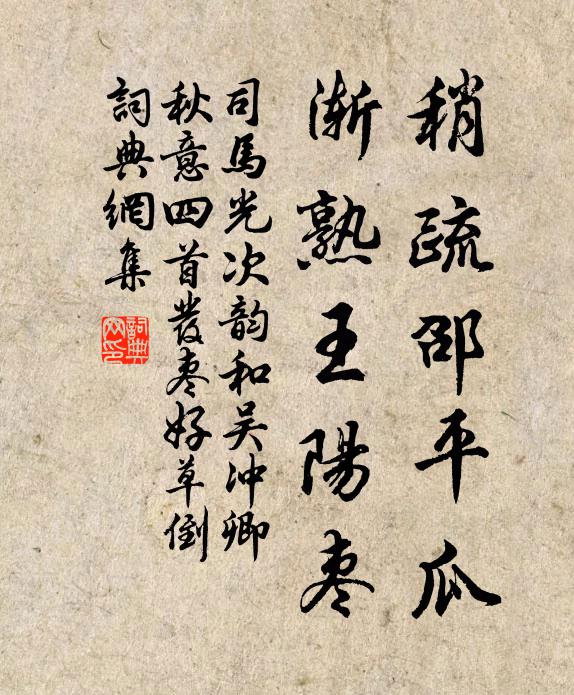 稍疏邵平瓜
漸熟王陽棗
司馬光次韵和吴冲卿
秋意四首叢棗好草倒
詞典網集
詞典
网印